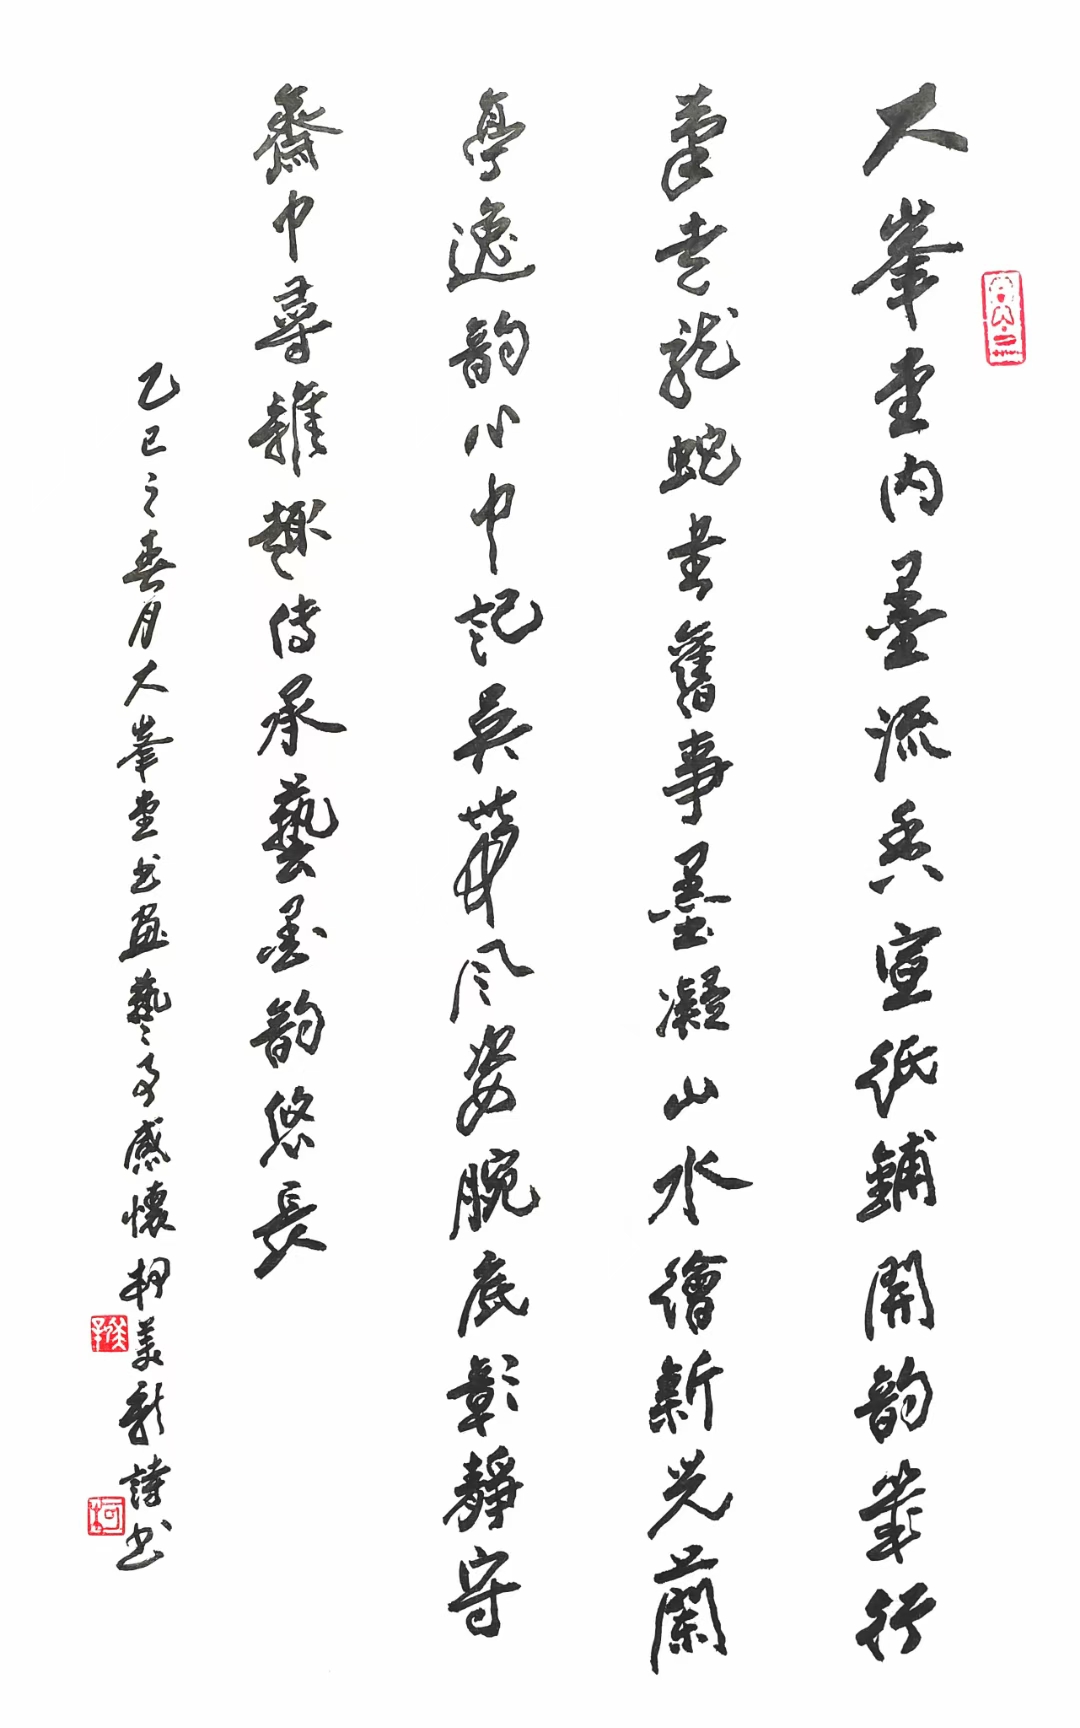 大峯堂内墨流香宣紙鋪開韵幾行
筆走龍蛇書舊事墨凝山水繪新光蘭
亭逸韵心中記吳帶風姿腕底彰靜守
齋中尋雅趣傳承藝墨韵悠長
乙巳之春月大峯堂书畫藝事感懷柯美詩书